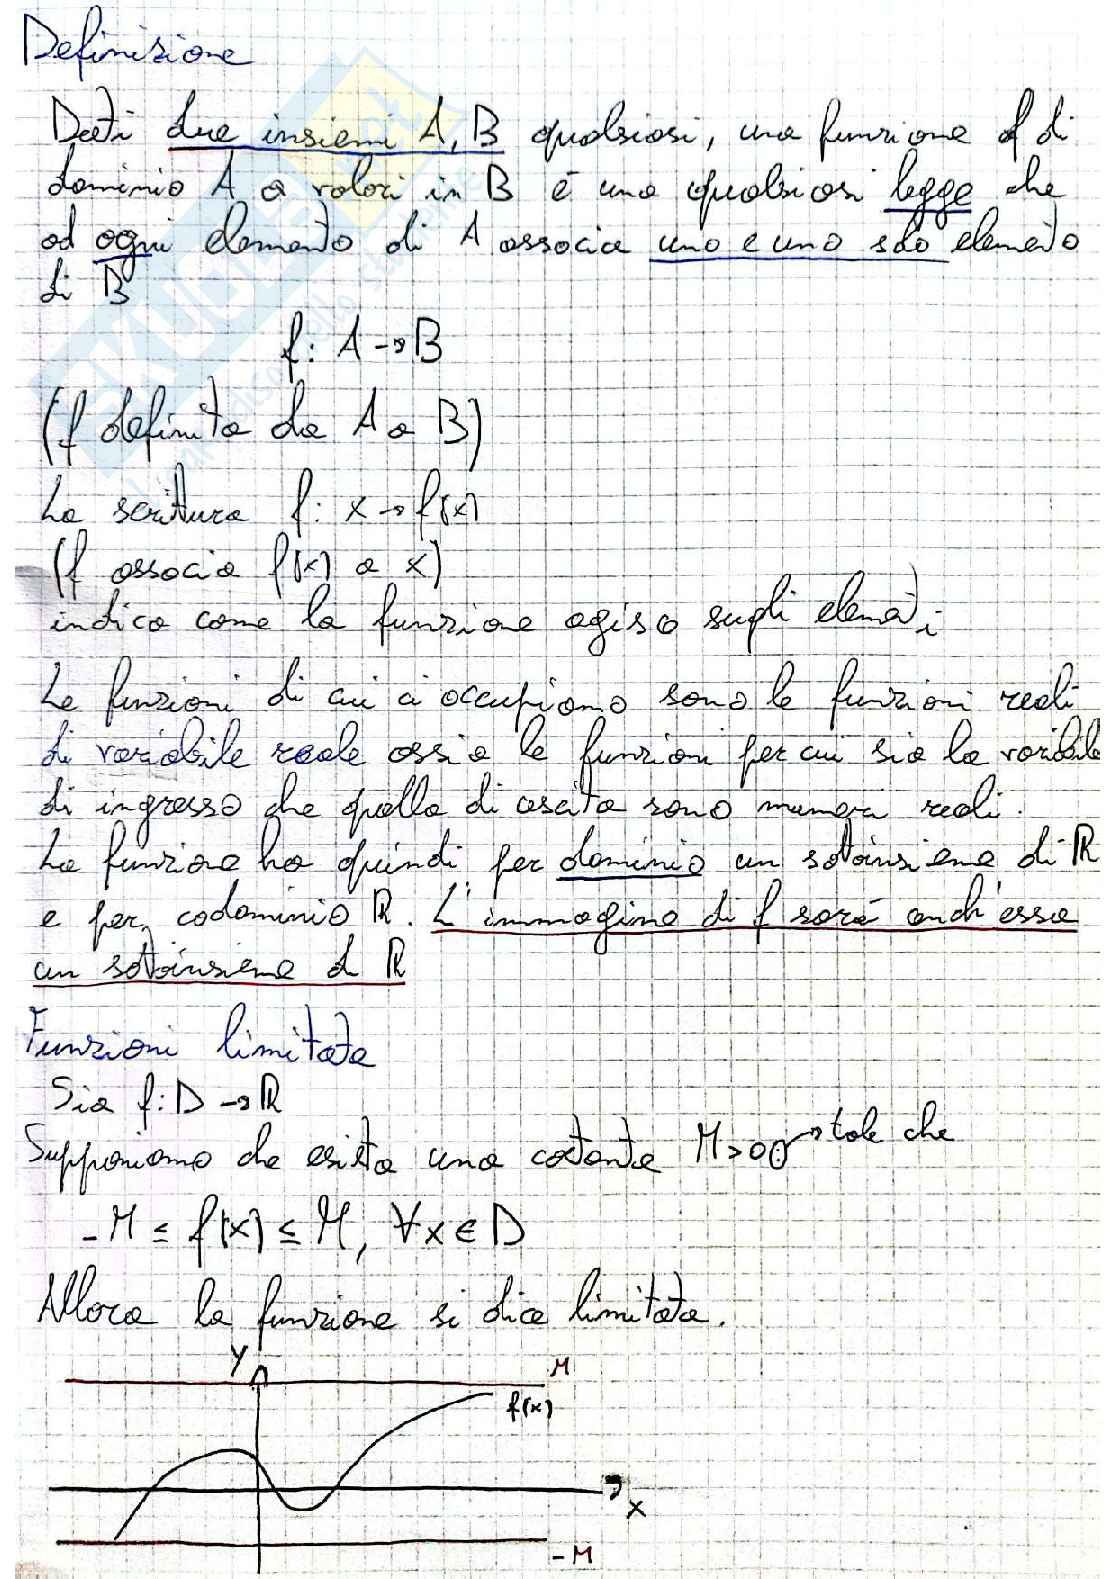 Definizione
Dati due insiemi A, B qualsiasi, una funzione f di
dominio A a valori in B è una qualsiasi legge che
ad ogni elemento di A associa uno e uno solo elemento
di B
f: A → B
(f definita da A a B)
La scrittura f: x → f(x)
(f associa f(x) a x)
indica come la funzione agisce sugli elementi
Le funzioni di cui ci occupiamo sono le funzioni reali
di variabile reale ossia le funzioni per cui sia la variabile
di ingresso che quella di uscita sono numeri reali.
La funzione ha quindi per dominio un sottoinsieme di ℝ
e per codominio ℝ. L'immagine di f sarà anch'essa
un sottoinsieme di ℝ
Funzioni limitate
Sia f: D → ℝ
Supponiamo che esista una costante M>0 → tale che
-M ≤ f(x) ≤ M, ∀x ∈ D
Allora la funzione si dice limitata.
y
M
f(x)
x
-M